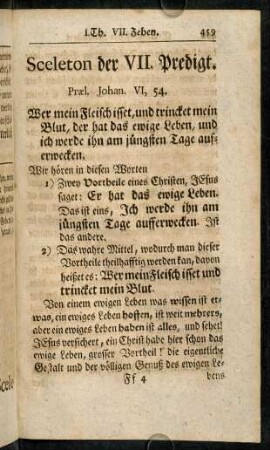 I. Th. VII. Zehen. 459
Sceleton der VII. Predigt.
Præl. Johan. VI, 54.
Wer mein Fleisch isset, und trincket mein
Blut, der hat das ewige Leben, und
ich werde ihn am jüngsten Tage auf-
erwecken.
Wir hören in diesen Worten
1) Zwey Vortheile eines Christen, JEsus
saget: Er hat das ewige Leben.
Das ist eins, Ich werde ihn am
jüngsten Tage aufferwecken. Ist
das andere.
2) Das wahre Mittel, wodurch man dieser
Vortheile theilhafftig werden kan, davon
heißet es: Wer mein Fleisch isset und
trincket mein Blut.
Von einem ewigen Leben was wissen ist et-
was, ein ewiges Leben hoffen, ist weit mehrers,
aber ein ewiges Leben haben ist alles, und sehet!
JEsus versichert, ein Christ habe hier schon das
ewige Leben, grosser Vortheil! die eigentliche
Gestalt und der völligen Genuß des ewigen Le-
Ff 4 bens